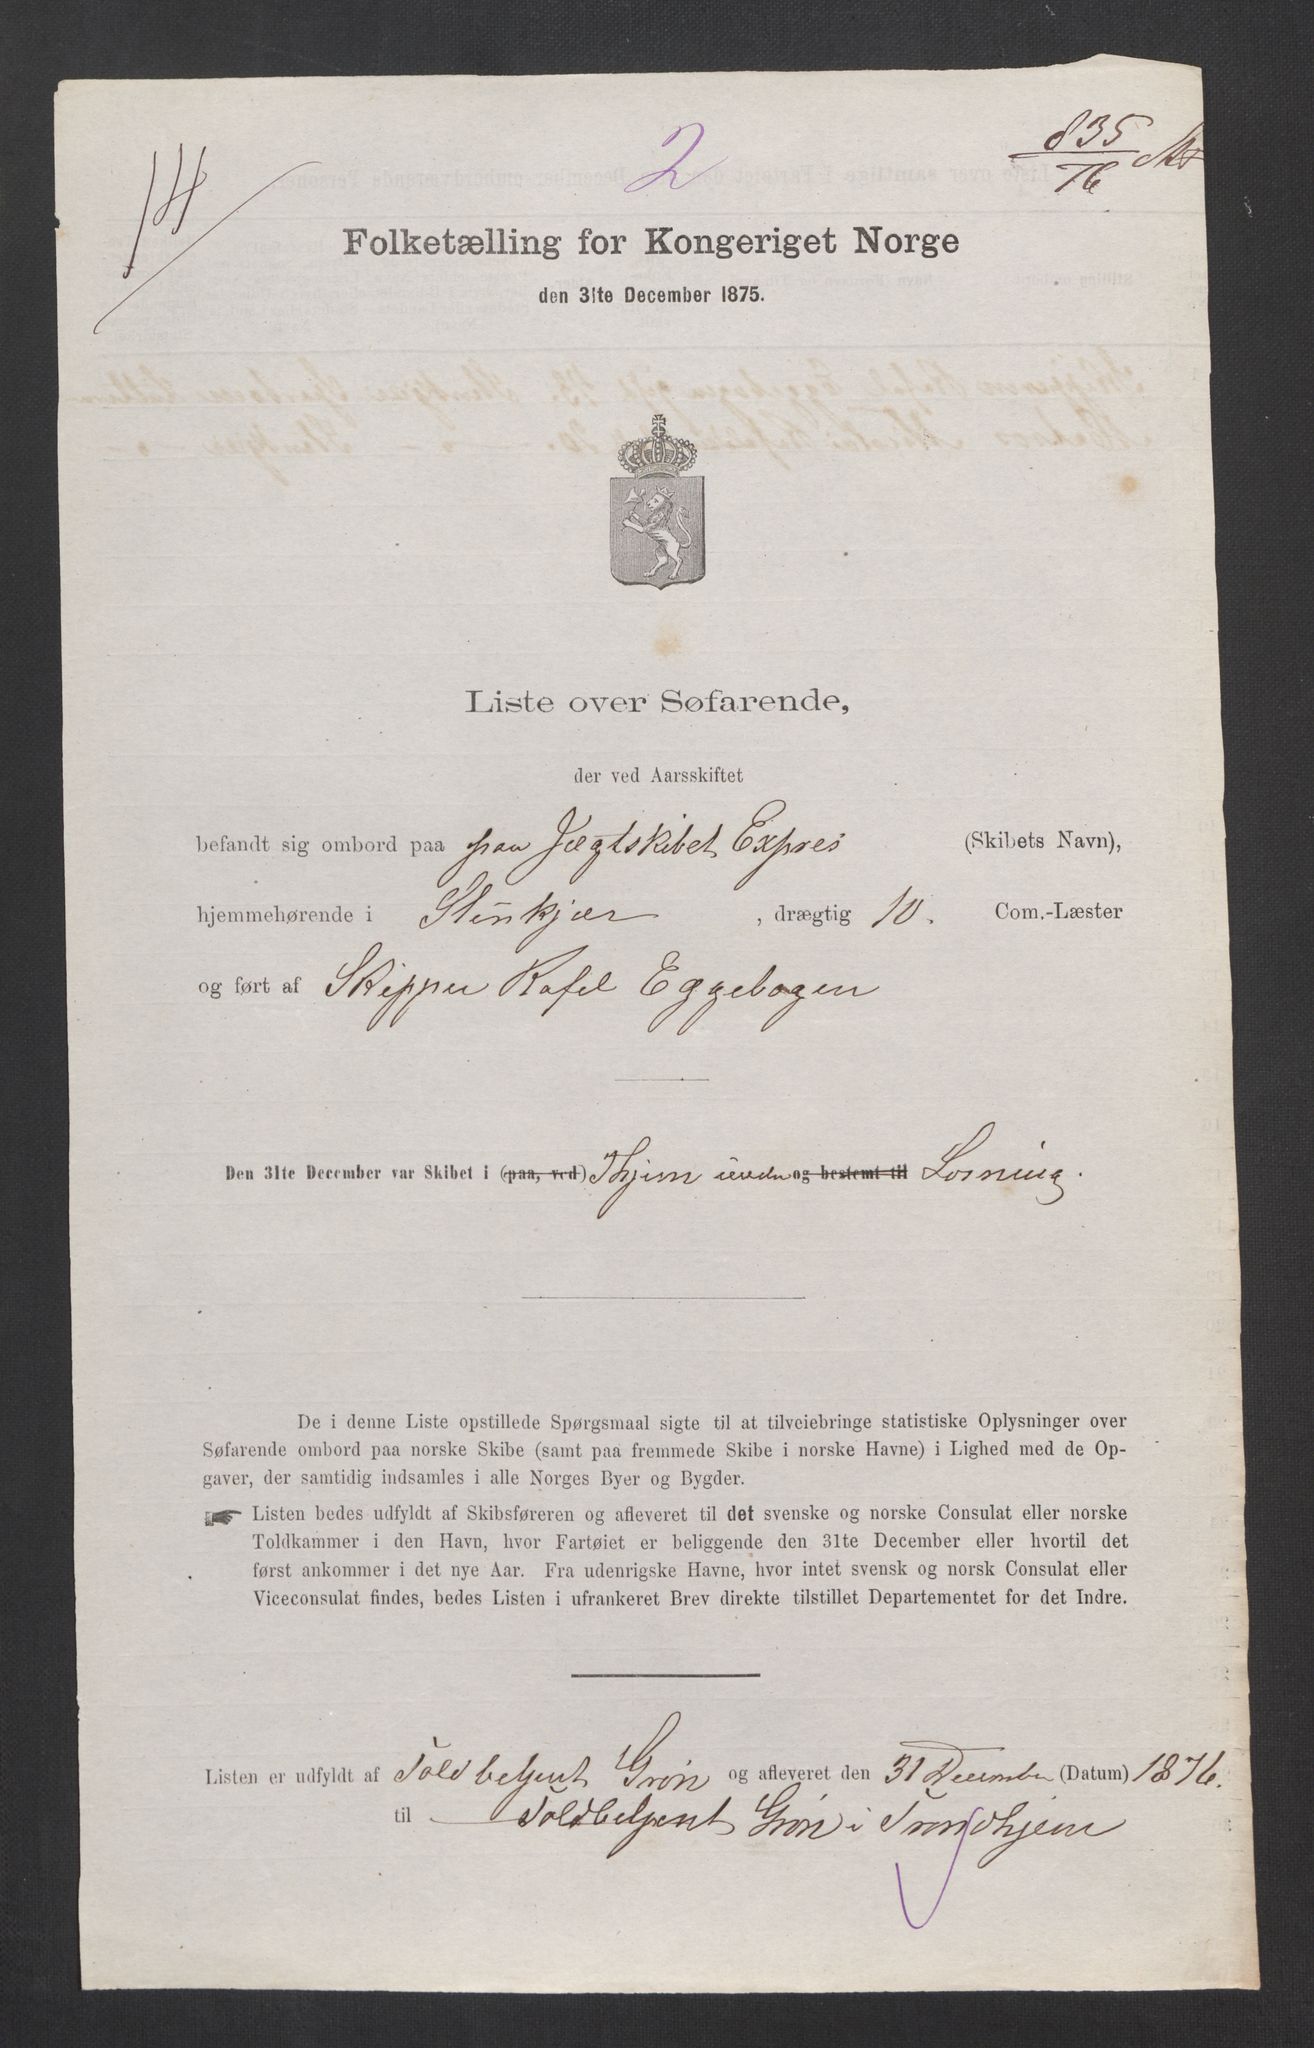 14
2
835
76
Folketælling for Kongeriget Norge
den 31te December 1875.
Liste over Søfarende,
der ved Aarsskiftet
befandt sig ombord paa paa Jægtskibet Expres (Skibets Navn),
hjemmehørende i Stenkjær, drægtig 10. Com.-Læster
og ført af Skipper Rafel Eggebogen
Den 31te December var Skibet i (paa, ved) Thjem under og bestemt til Losning.
De i denne Liste opstillede Spørgsmaal sigte til at tilveiebringe statistiske Oplysninger over
Søfarende ombord paa norske Skibe (samt paa fremmede Skibe i norske Havne) i Lighed med de Op-
gaver, der samtidig indsamles i alle Norges Byer og Bygder.
☛ Listen bedes udfyldt af Skibsføreren og afleveret til det svenske og norske Consulat eller norske
Toldkammer i den Havn, hvor Fartøiet er beliggende den 31te December eller hvortil det
først ankommer i det nye Aar. Fra udenrigske Havne, hvor intet svensk og norsk Consulat eller
Viceconsulat findes, bedes Listen i ufrankeret Brev direkte tilstillet Departementet for det Indre.
Listen er udfyldt af Toldbetjent Grøn og afleveret den 31 December (Datum) 1876.
til Toldbetjent Grøn i Trondhjem